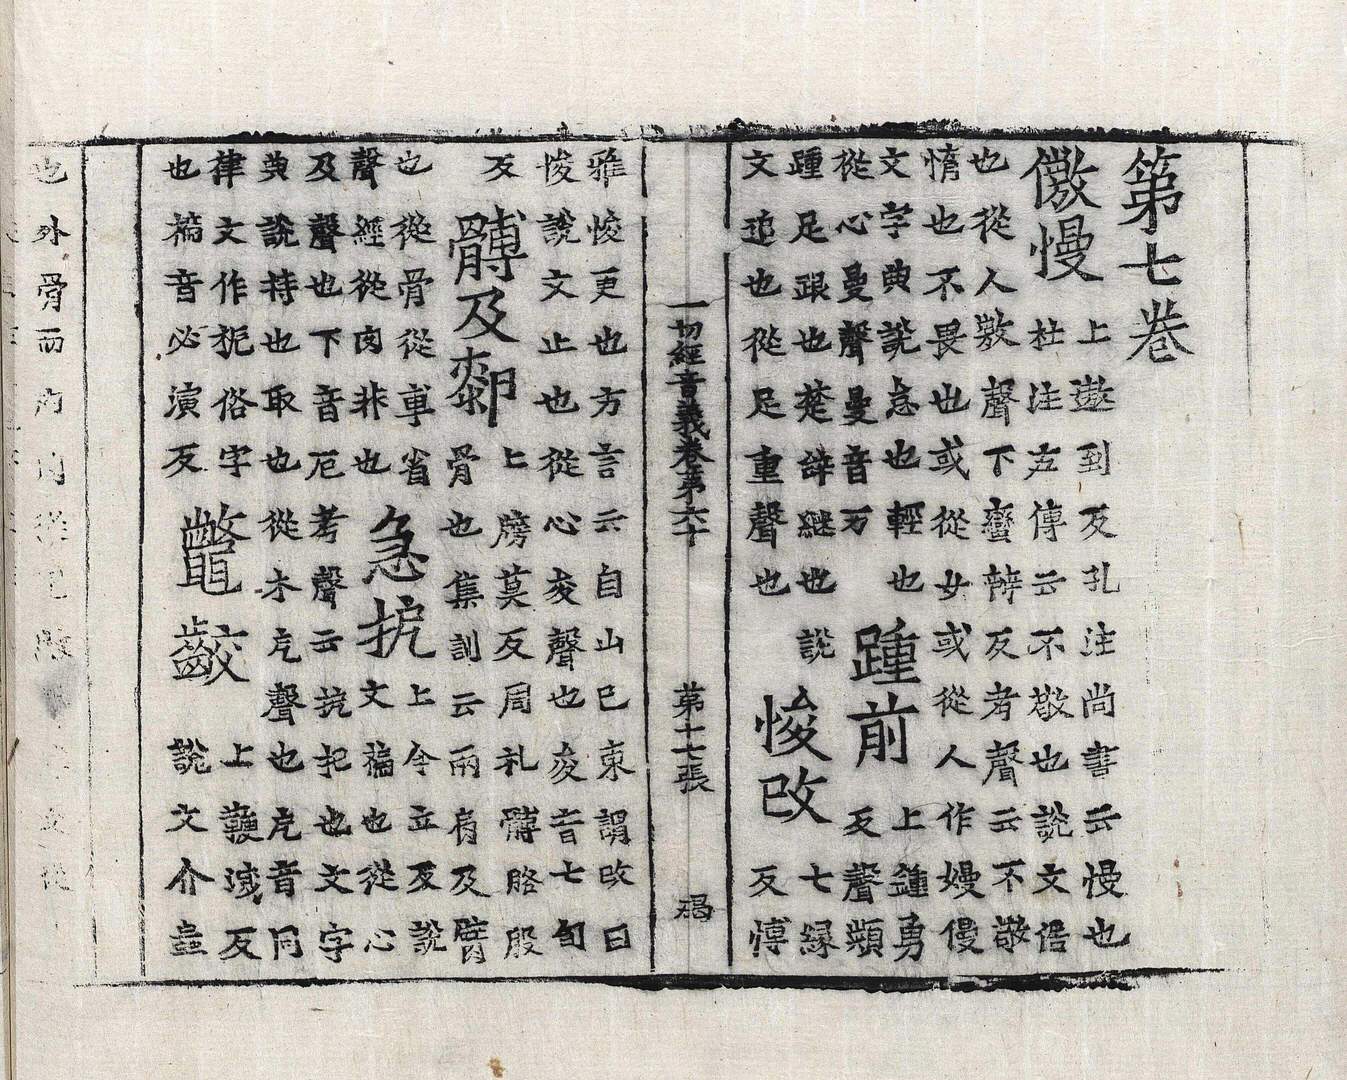 第七卷
傲慢
上遨到反孔注尚書云慢也
杜注左傳云不敬也說文倨
也從人敖聲下蠻辨反考聲云不敬
惰也不畏也或從女或從人作嫚僈
文字典說怠也輕也
從心曼聲曼音万
踵前
上鍾勇
反聲頪
踵足跟也楚辞継也說
文追也從足重聲也
悛改
七縁
反愽
一切經音義卷第六十 第十七張 碣
雅悛更也方言云自山已東謂改曰
悛說文止也從心夋聲也夋音七旬
反
髆及
上膀莫反周礼髆胳股
骨也集訓云兩肩及臂
也從骨從専省
聲經從肉非也
急搹
上今立反說
文褊也從心
及聲也下音厄考聲云搹把也文字
典說持也取也從木戹聲也戹音同
律文作扼俗字
也褊音必演反
鼈齩
上鞭滅反
說文介䖝
也外骨而內肉從黽